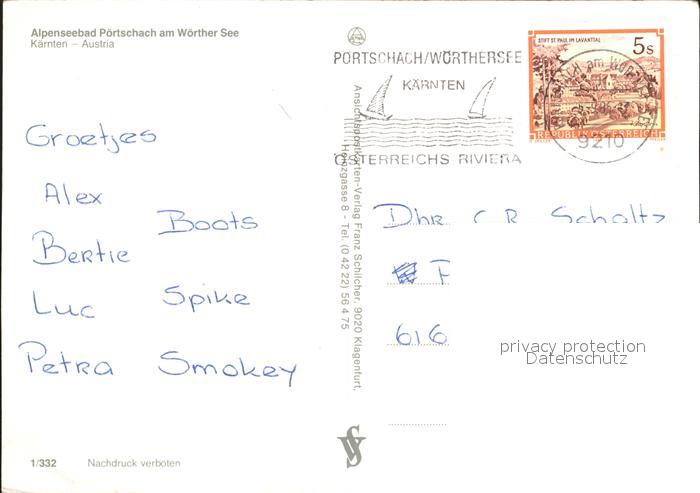 Alpenseebad Pörtschach am Wörther See
Kärnten – Austria
Groetjes
Alex
Boots
Bertie
Luc
Spike
Petra
Smokey
1/332 Nachdruck verboten
Ansichtspostkarten-Verlag Franz Schilcher, 9020 Klagenfurt,
Herzgasse 8 - Tel. (0 42 22) 56 4 75
PÖRTSCHACH/WÖRTHERSEE
KÄRNTEN
ÖSTERREICHS RIVIERA
STIFT ST. PAUL IM LAVANTTAL
5s
REPUBLIK ÖSTERREICH
9210
Dhr C R Scholtz
F
616
privacy protection
Datenschutz